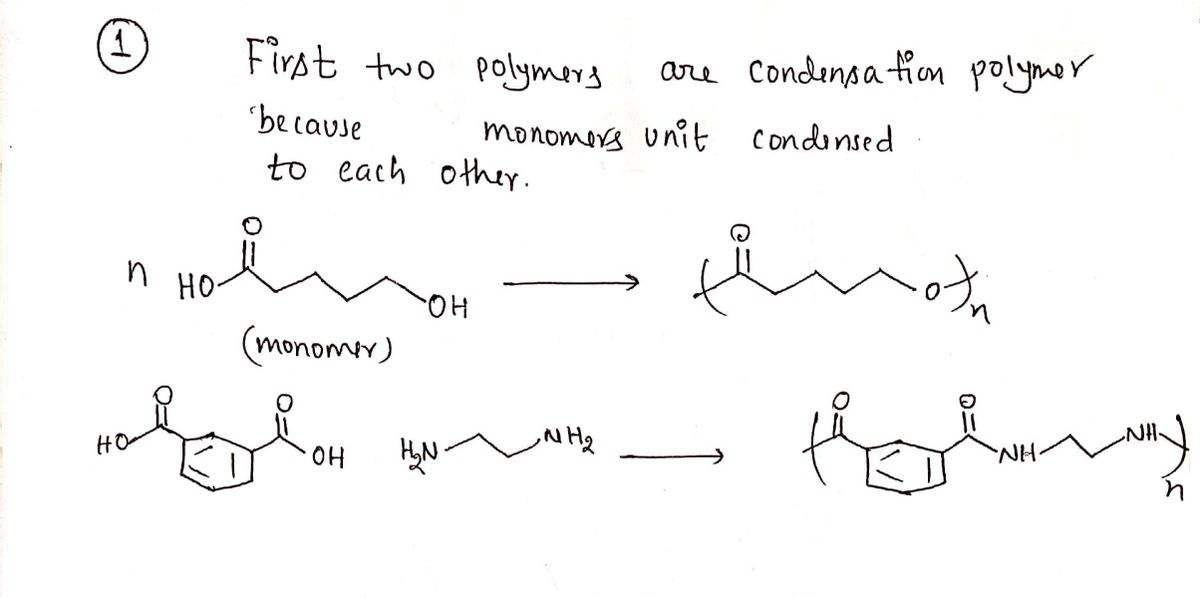 1
First two polymers are condensation polymer
because monomers unit condensed
to each other.
O O
n HO OH O n
(monomer)
O O O O
HO OH H2N NH2 NH NH n